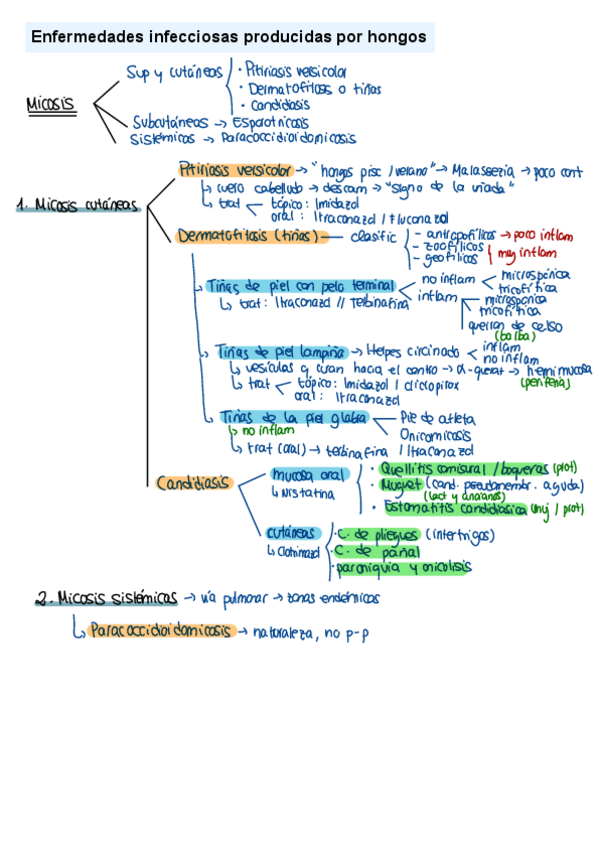 Enfermedades infecciosas producidas por hongos
Micosis
Sup y cutáneas
· Pitiriasis versicolor
· Dermatofitosis o tiñas
· Candidiasis
Subcutáneas → Esporotricosis
Sistémicas → Paracoccidioidomicosis
1. Micosis cutáneas
Pitiriasis versicolor → "hongos pisc / verano" → Malassezia → poco cont
↳ cuero cabelludo → descam → "signo de la uñada"
↳ trat
tópico: Imidazol
oral: Itraconazol / Fluconazol
Dermatofitosis (tiñas) — clasific
- antropofílicos → poco inflam
- zoofílicos
- geofílicos
muy inflam
Tiñas de piel con pelo terminal
no inflam
microspórica
tricofítica
↳ trat: Itraconazol // terbinafina
inflam
microspórica
tricofítica
querion de celso
(barba)
Tiñas de piel lampiña → Herpes circinado
inflam
no inflam
↳ vesículas q curan hacia el centro → d-querat → hemimucosa
(periferia)
↳ trat
tópico: Imidazol / ciclopirox
oral: Itraconazol
Tiñas de la piel glabra
Pie de atleta
Onicomicosis
↳ no inflam
↳ trat (oral) → terbinafina / Itraconazol
Candidiasis
mucosa oral
↳ Nistatina
· Queilitis comisural / boqueras (prot)
· Muguet (cand. pseudomembr. aguda)
(lact y ancianos)
· Estomatitis candidiásica (muj / prot)
cutáneas
↳ Clotrimazol
· C. de pliegues (intertrigos)
· C. de pañal
· paroniquia y onicolisis
2. Micosis sistémicas → vía pulmonar → zonas endémicas
↳ Paracoccidioidomicosis → naturaleza, no p-p